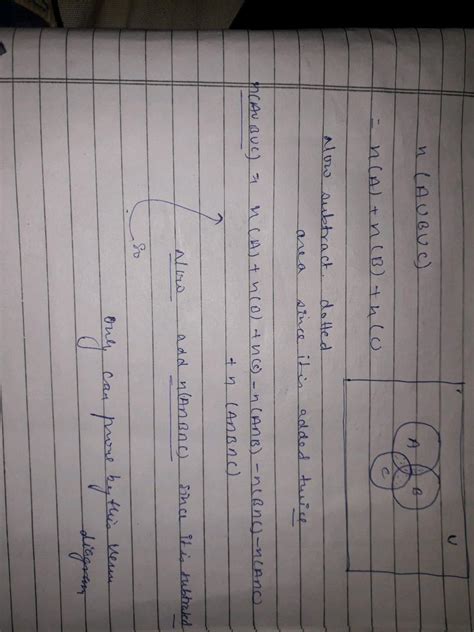 n(A∪B∪C)
= n(A) + n(B) + n(C)
U
A
B
C
Now subtract dotted
area since it is added twice
n(A∪B∪C) = n(A) + n(B) + n(C) - n(A∩B) - n(B∩C) - n(A∩C)
+ n(A∩B∩C)
Now add n(A∩B∩C) since it is subtracted
so
only can prove by this Venn
diagram